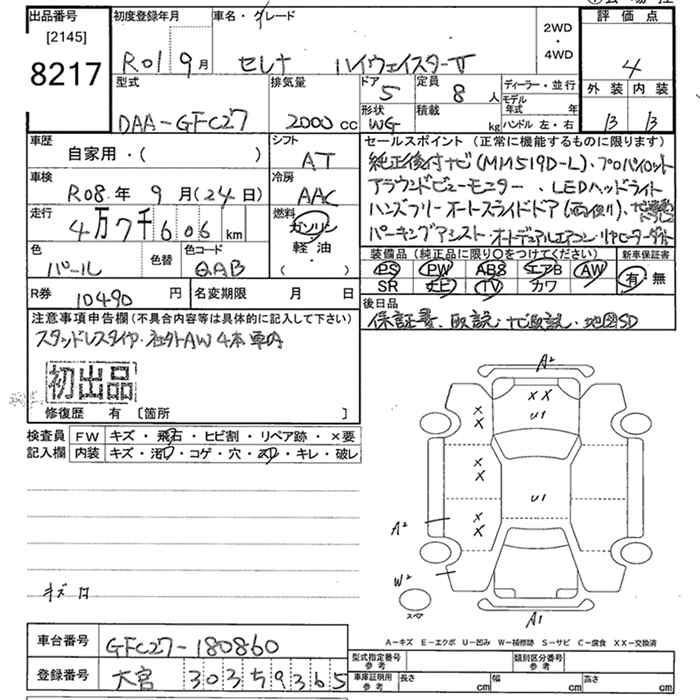 出品番号 初度登録年月 車名・グレード 2WD ・ 4WD 評価点
[2145]
8217
R01 9月 セレナ ハイウェイスターV 4
型式 排気量 ドア 定員 ディーラー・並行 外装 内装
DAA-GFC27 2000cc 5 8人 モデル年式 年 B B
形状 積載 ハンドル 左・右
WG kg
車歴 シフト セールスポイント (正常に機能するものに限ります)
自家用・( ) AT 純正後付ナビ(MM519D-L)、プロパイロット
車検 冷房 アラウンドビューモニター、LEDヘッドライト
R08年 9月(24日) AAC ハンズフリーオートスライドドア(両側)、
走行 燃料 パーキングアシスト・オートデュアルエアコン・リヤヒーターダクト
4万7千606km ガソリン 軽油 ( )
色 色替 色コード 装備品 (純正品に限り○をつけてください) 新車保証書
パール QAB PS PW ABS エアB AW 有・無
SR ナビ TV カワ
R券 10490円 名変期限 月 日 後日品
保証書、取説、ナビ取説、地図SD
注意事項申告欄 (不具合内容等は具体的に記入して下さい)
スタッドレスタイヤ・社外AW4本車内
初出品
修復歴 有 [箇所 ]
検査員 FW キズ・飛石・ヒビ割・リペア跡・×要
記入欄 内装 キズ・汚レ・コゲ・穴・スレ・キレ・破レ
A2
XX
U1
X X
X X
U1
A2
X X
W2
スペア
A1
キズ 凹
A-キズ E-エクボ U-凹み W-補修跡 S-サビ C-腐食 XX-交換済
車台番号 GFC27-180860
型式指定番号 参考 類別区分番号 参考
登録番号 大宮 303 5 9365
車庫証明用 参考 長さ cm 幅 cm 高さ cm